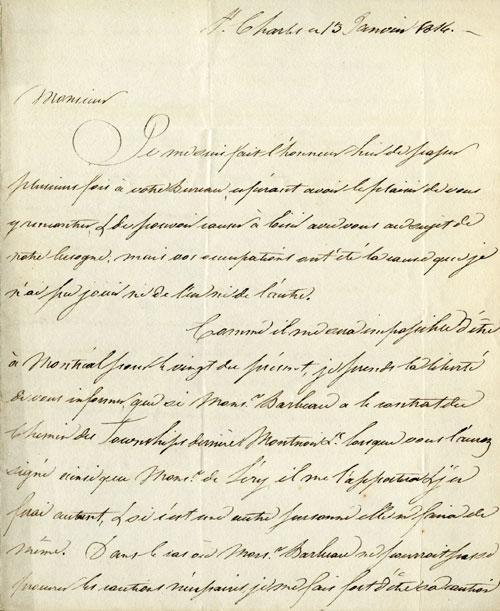 St. Charles ce 13 Janvier 1814. —
Monsieur
Je me suis fait l'honneur hier de passer
plusieurs fois à votre Bureau, espérant avoir le plaisir de vous
y rencontrer, & de pouvoir causer à loisir avec vous au sujet de
notre besogne, mais vos occupations ont été la cause que je
n'ai pu jouir ni de l'un ni de l'autre.
Comme il me sera impossible d'être
à Montréal pour le vingt du présent, je prends la liberté
de vous informer, que si Mons.r Barbeau a le contrat du
Chemin des Townships derrière lorsque vous l'aurez
signé ainsi que Mons.r de Léry il me l'apportera & j'en
ferai autant, & si c'est une autre personne elle en fera de
même. Dans le cas où Mons.r Barbeau ne pourroit pas se
procurer les cautions nécessaires je me fais fort d'être sa caution